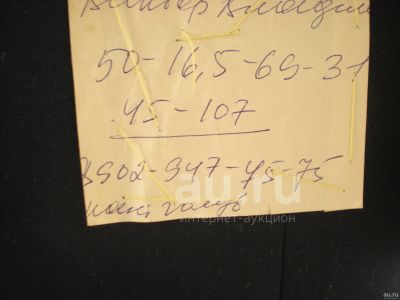 Виктор Владим
50-16,5-69-31
45-107
8902-947-45-75
au.ru
интернет-аукцион
au.ru